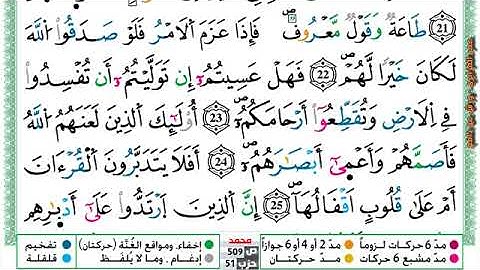 طَاعَةٌ وَقَوْلٌ مَّعْرُوفٌ فَإِذَا عَزَمَ اَلَامْرُ فَلَوْ صَدَقُواْ اُللَّهَ
لَكَانَ خَيْراً لَّهُمْ 22 فَهَلْ عَسِيتُمُۥٓ إِن تَوَلَّيْتُمُۥٓ أَن تُفْسِدُواْ
فِے اِلَارْضِ وَتُقَطِّعُوٓاْ أَرْحَامَكُمُۥٓ 23 أُوْلَٰٓئِكَ اَلذِينَ لَعَنَهُمُ اُللَّهُ
فَأَصَمَّهُمْ وَأَعْمَىٰٓ أَبْصَٰرَهُمُۥٓ 24 أَفَلَا يَتَدَبَّرُونَ اَلْقُرْءَانَ
أَمْ عَلَىٰ قُلُوبٍ اَقْفَالُهَآ 25 إِنَّ اَلذِينَ اَرْتَدُّواْ عَلَىٰٓ أَدْبَٰرِهِم
21
مدّ 6 حركات لزوماً مدّ 2 أو 4 أو 6 جوازاً
مدّ مشبع 6 حركات مدّ حركتان
محمد
509
حزب 51
إخفاء، ومواقع الغُنَّة (حركتان) تفخيم
إدغام، وما لا يُلفظ قلقلة